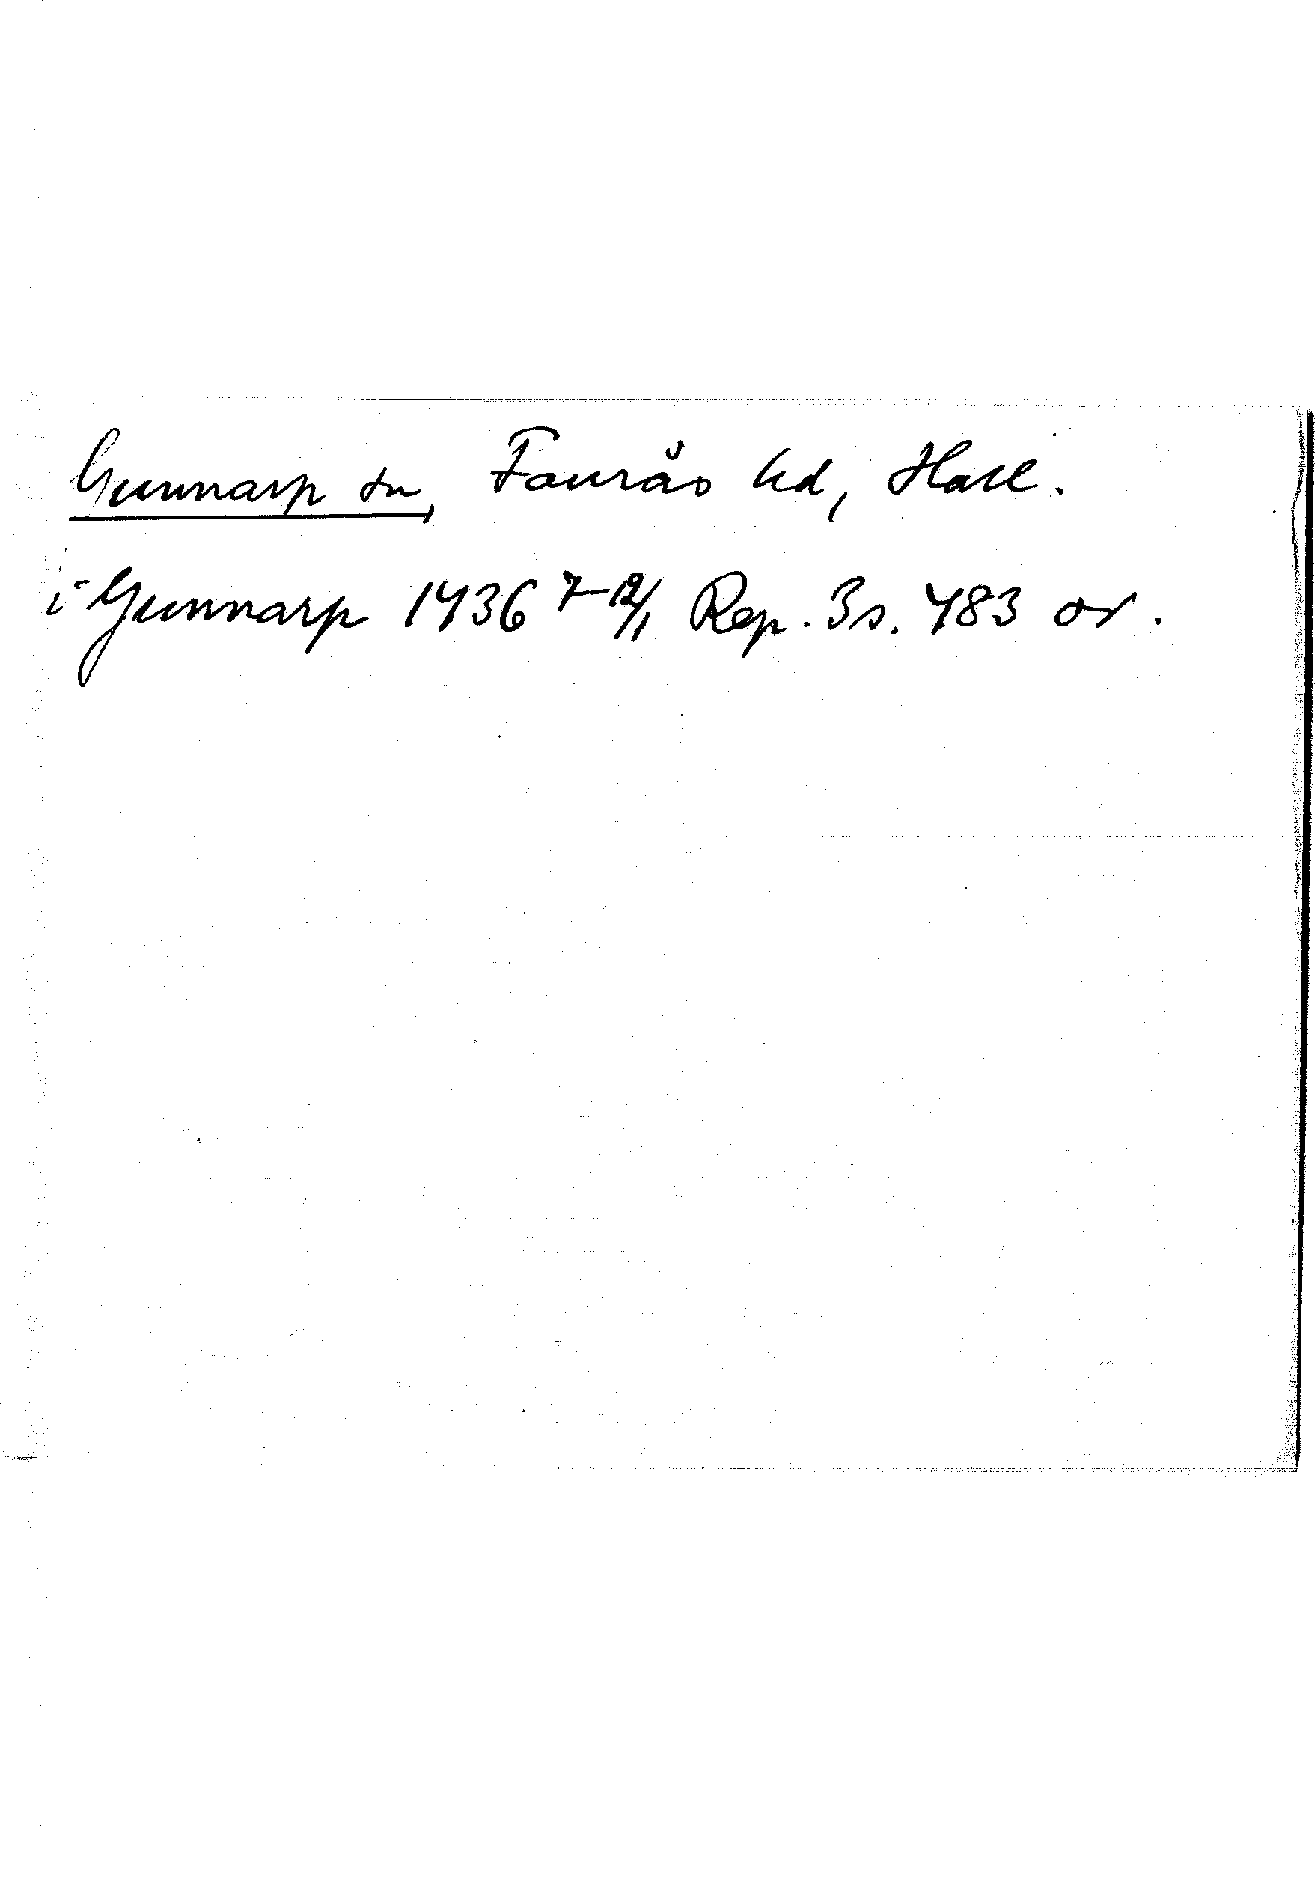 Gunnarp sn, Faurås hd, Hall.
i Gunnarp 1436 7-12/1 Rep. 3 s. 483 or.